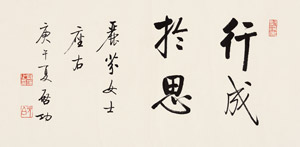 行成
於思
麗芬女士
座右
庚午夏啓功